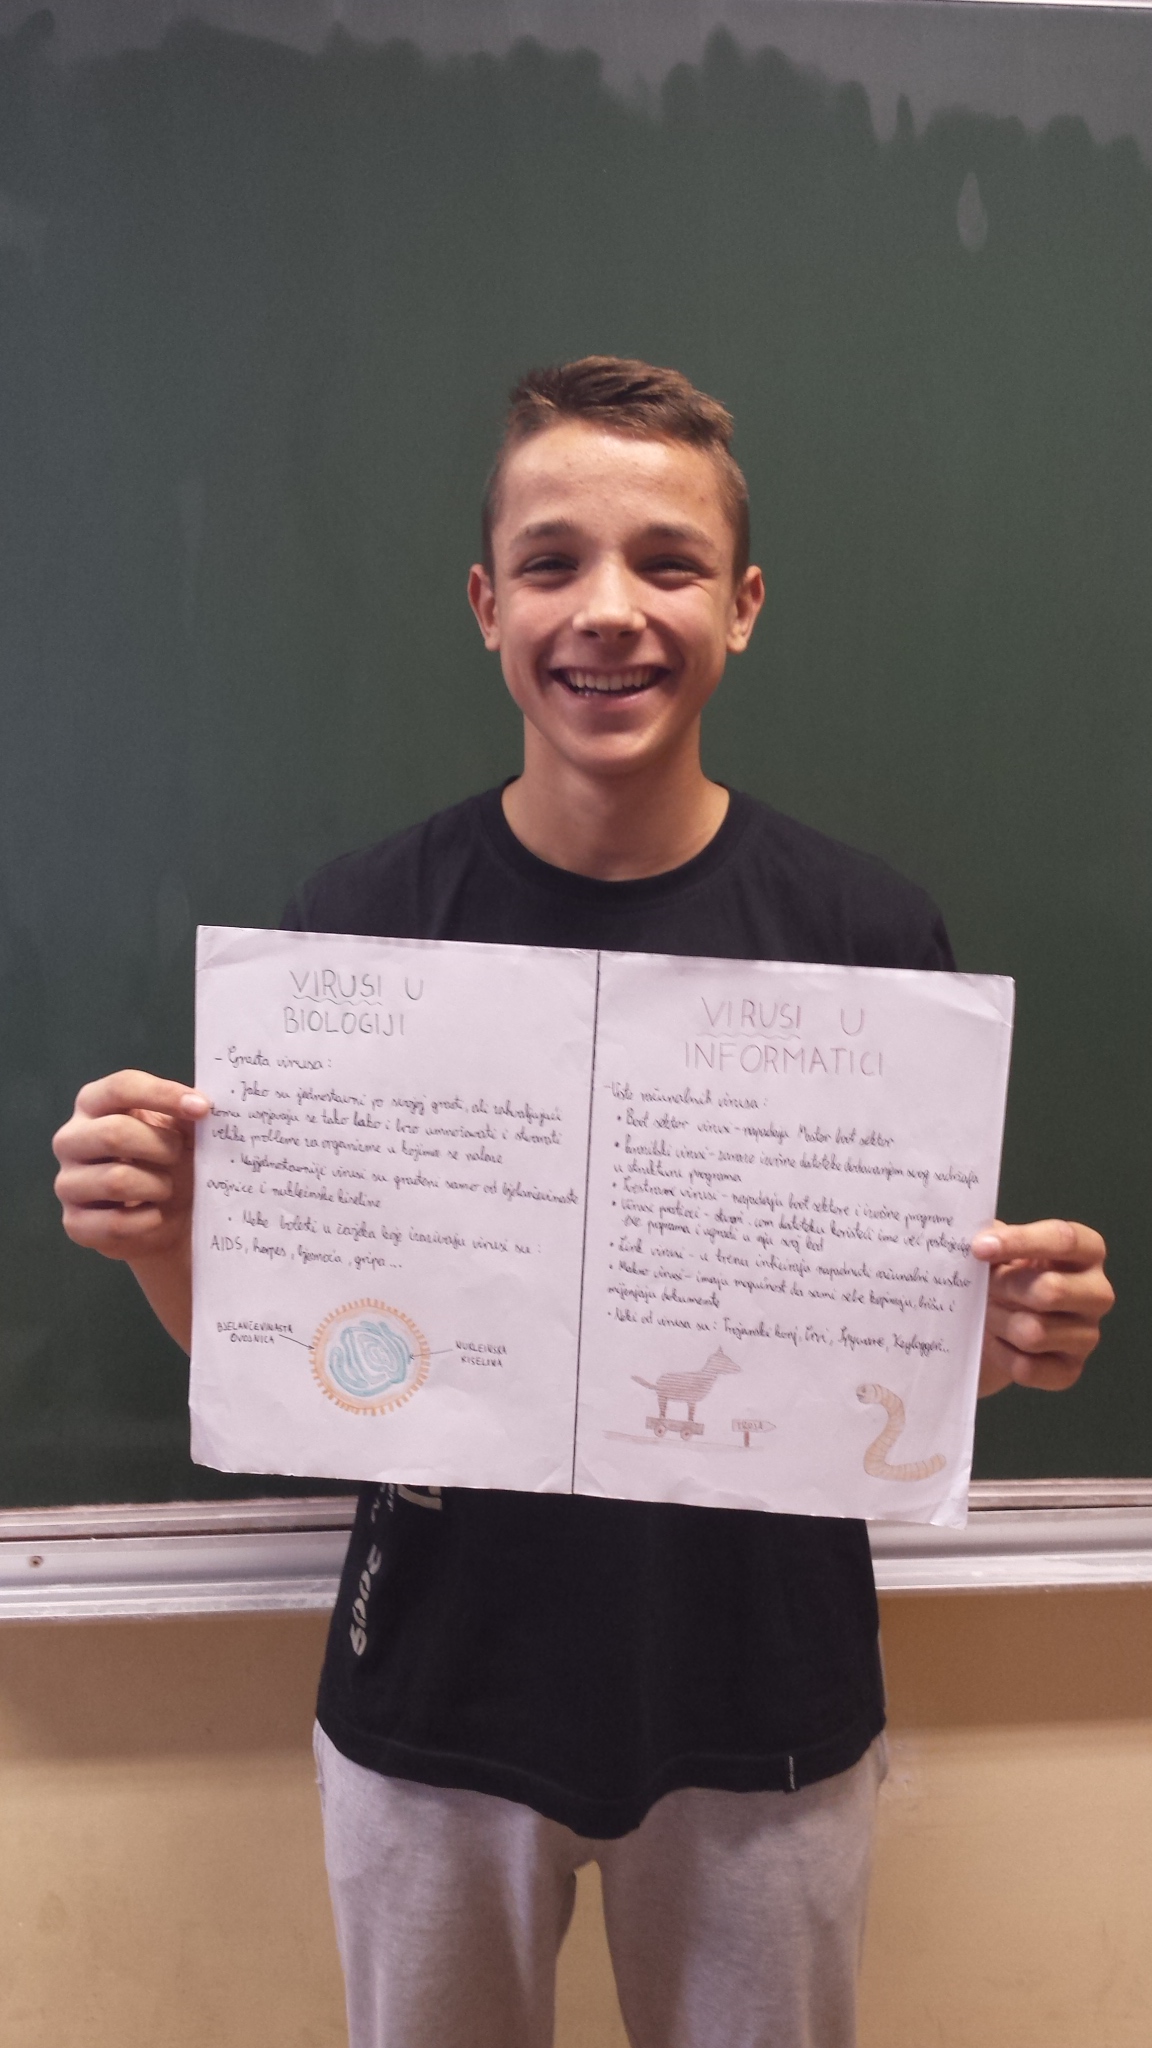 VIRUSI U
BIOLOGIJI
- Građa virusa:
• Jako su jednostavni po svojoj građi, ali zahvaljujući
tomu uspjevaju se tako lako i brzo umnožavati i stvarati
velike probleme za organizme u kojima se nalaze
• Najjednostavniji virusi su građeni samo od bjelančevinaste
ovojnice i nukleinske kiseline
• Neke bolesti u čovjeka koje izazivaju virusi su:
AIDS, herpes, bjesnoća, gripa...
BJELANČEVINASTA
OVOJNICA
NUKLEINSKA
KISELINA
VIRUSI U
INFORMATICI
- Vrste računalnih virusa:
• Boot sektor virusi - napadaju Master boot sektor
• Parazitski virusi - zaraze izvršne datoteke dodavanjem svog sadržaja
u strukturu programa
• Svestrani virusi - napadaju boot sektore i izvršne programe
• Virusi pratioci - stvori .com datoteku koristeći ime već postojećeg
.exe programa i ugradi u nju svoj kod
• Link virusi - u trenu inficiraju napadnuti računalni sustav
• Makro virusi - imaju mogućnost da sami sebe kopiraju, brišu i
mijenjaju dokumente
• Neki od virusa su: Trojanski konj, Crvi, Spyware, Keyloggeri...
TROJA
2009